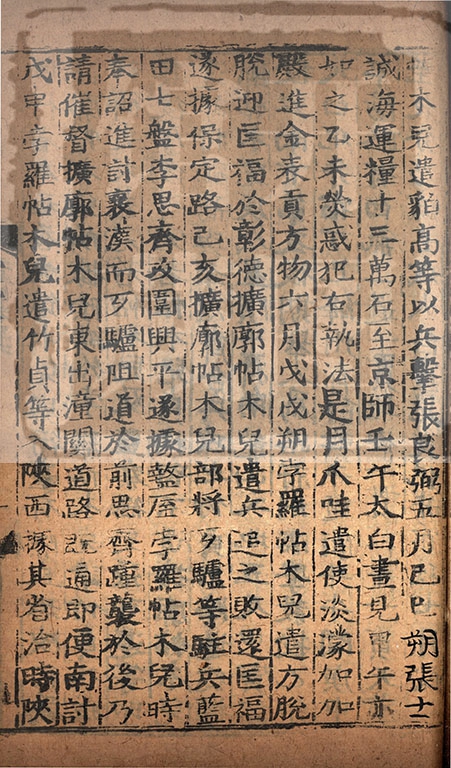 帖木兒遣貊高等以兵擊張良弼五月己巳朔張士
誠海運糧十三萬石至京師壬午太白晝見甲午亦
如之乙未熒惑犯右執法是月爪哇遣使淡濛加加
殿進金表貢方物六月戊戌朔孛羅帖木兒遣方脫
脫迎匡福於彰德擴廓帖木兒遣兵追之敗還匡福
遂據保定路己亥擴廓帖木兒部將歹驢等駐兵藍
田七盤李思齊攻圍興平遂據盩厔孛羅帖木兒時
奉詔進討襄漢而歹驢阻道於前思齊踵襲於後乃
請催督擴廓帖木兒東出潼關道路既通即便南討
戊申孛羅帖木兒遣竹貞等入陝西據其省治時陝